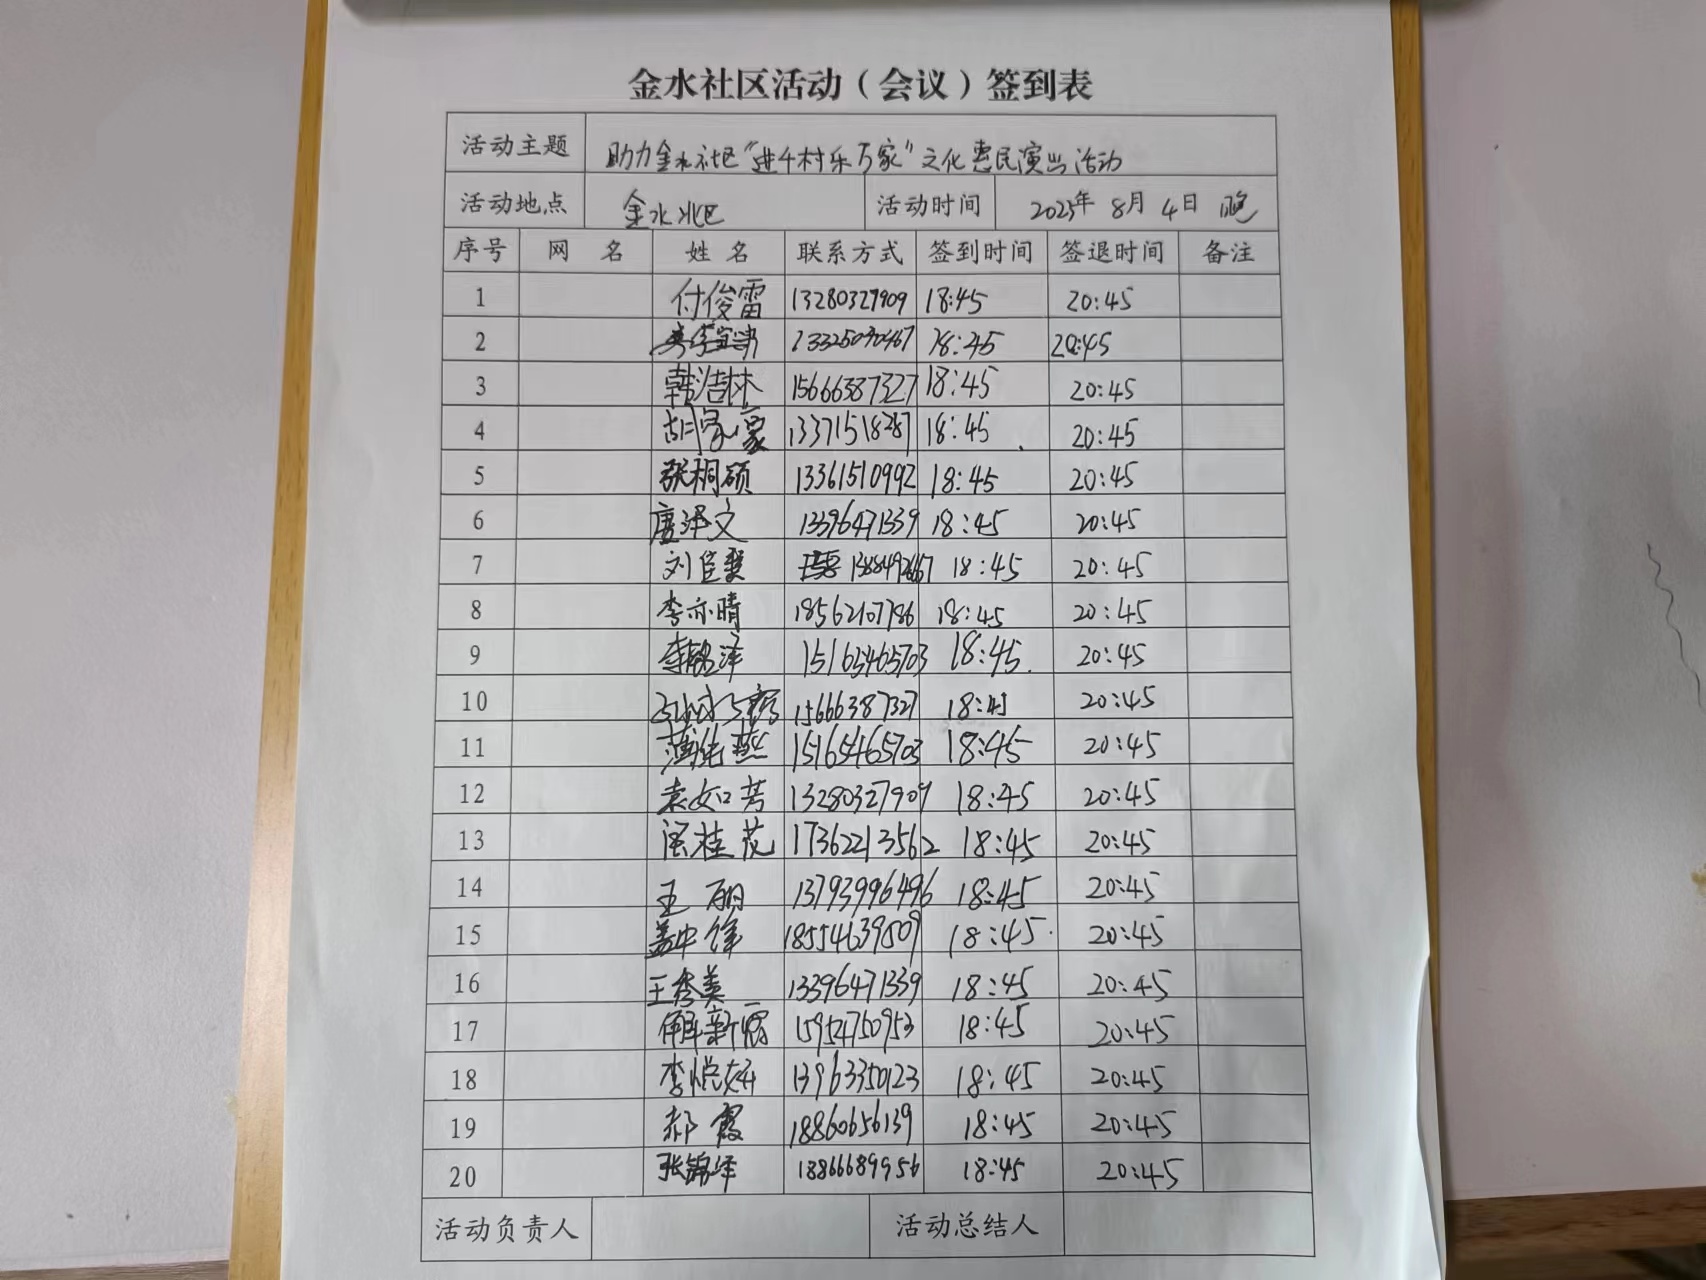 金水社区活动（会议）签到表
活动主题 助力金水社区“进千村乐万家”文化惠民演出活动
活动地点 金水社区 活动时间 2025年 8月 4日 晚
序号 网 名 姓 名 联系方式 签到时间 签退时间 备注
1 付俊雷 13280327909 18:45 20:45
2 18:45 20:45
3 韩浩林 15666387327 18:45 20:45
4 胡家豪 13371518287 18:45 20:45
5 张桐硕 13361510992 18:45 20:45
6 唐泽文 13396471339 18:45 20:45
7 刘 18:45 20:45
8 李亦晴 18562107786 18:45 20:45
9 李铭泽 15165465703 18:45 20:45
10 15666387327 18:45 20:45
11 燕 15165465703 18:45 20:45
12 袁如芳 13280327909 18:45 20:45
13 桂花 17362213562 18:45 20:45
14 王丽 13793996496 18:45 20:45
15 盖中锋 18554639509 18:45 20:45
16 王秀美 13396471339 18:45 20:45
17 解新霞 15954750953 18:45 20:45
18 李悦妍 13963350123 18:45 20:45
19 郝霞 18860656139 18:45 20:45
20 张锦泽 13866689956 18:45 20:45
活动负责人 活动总结人